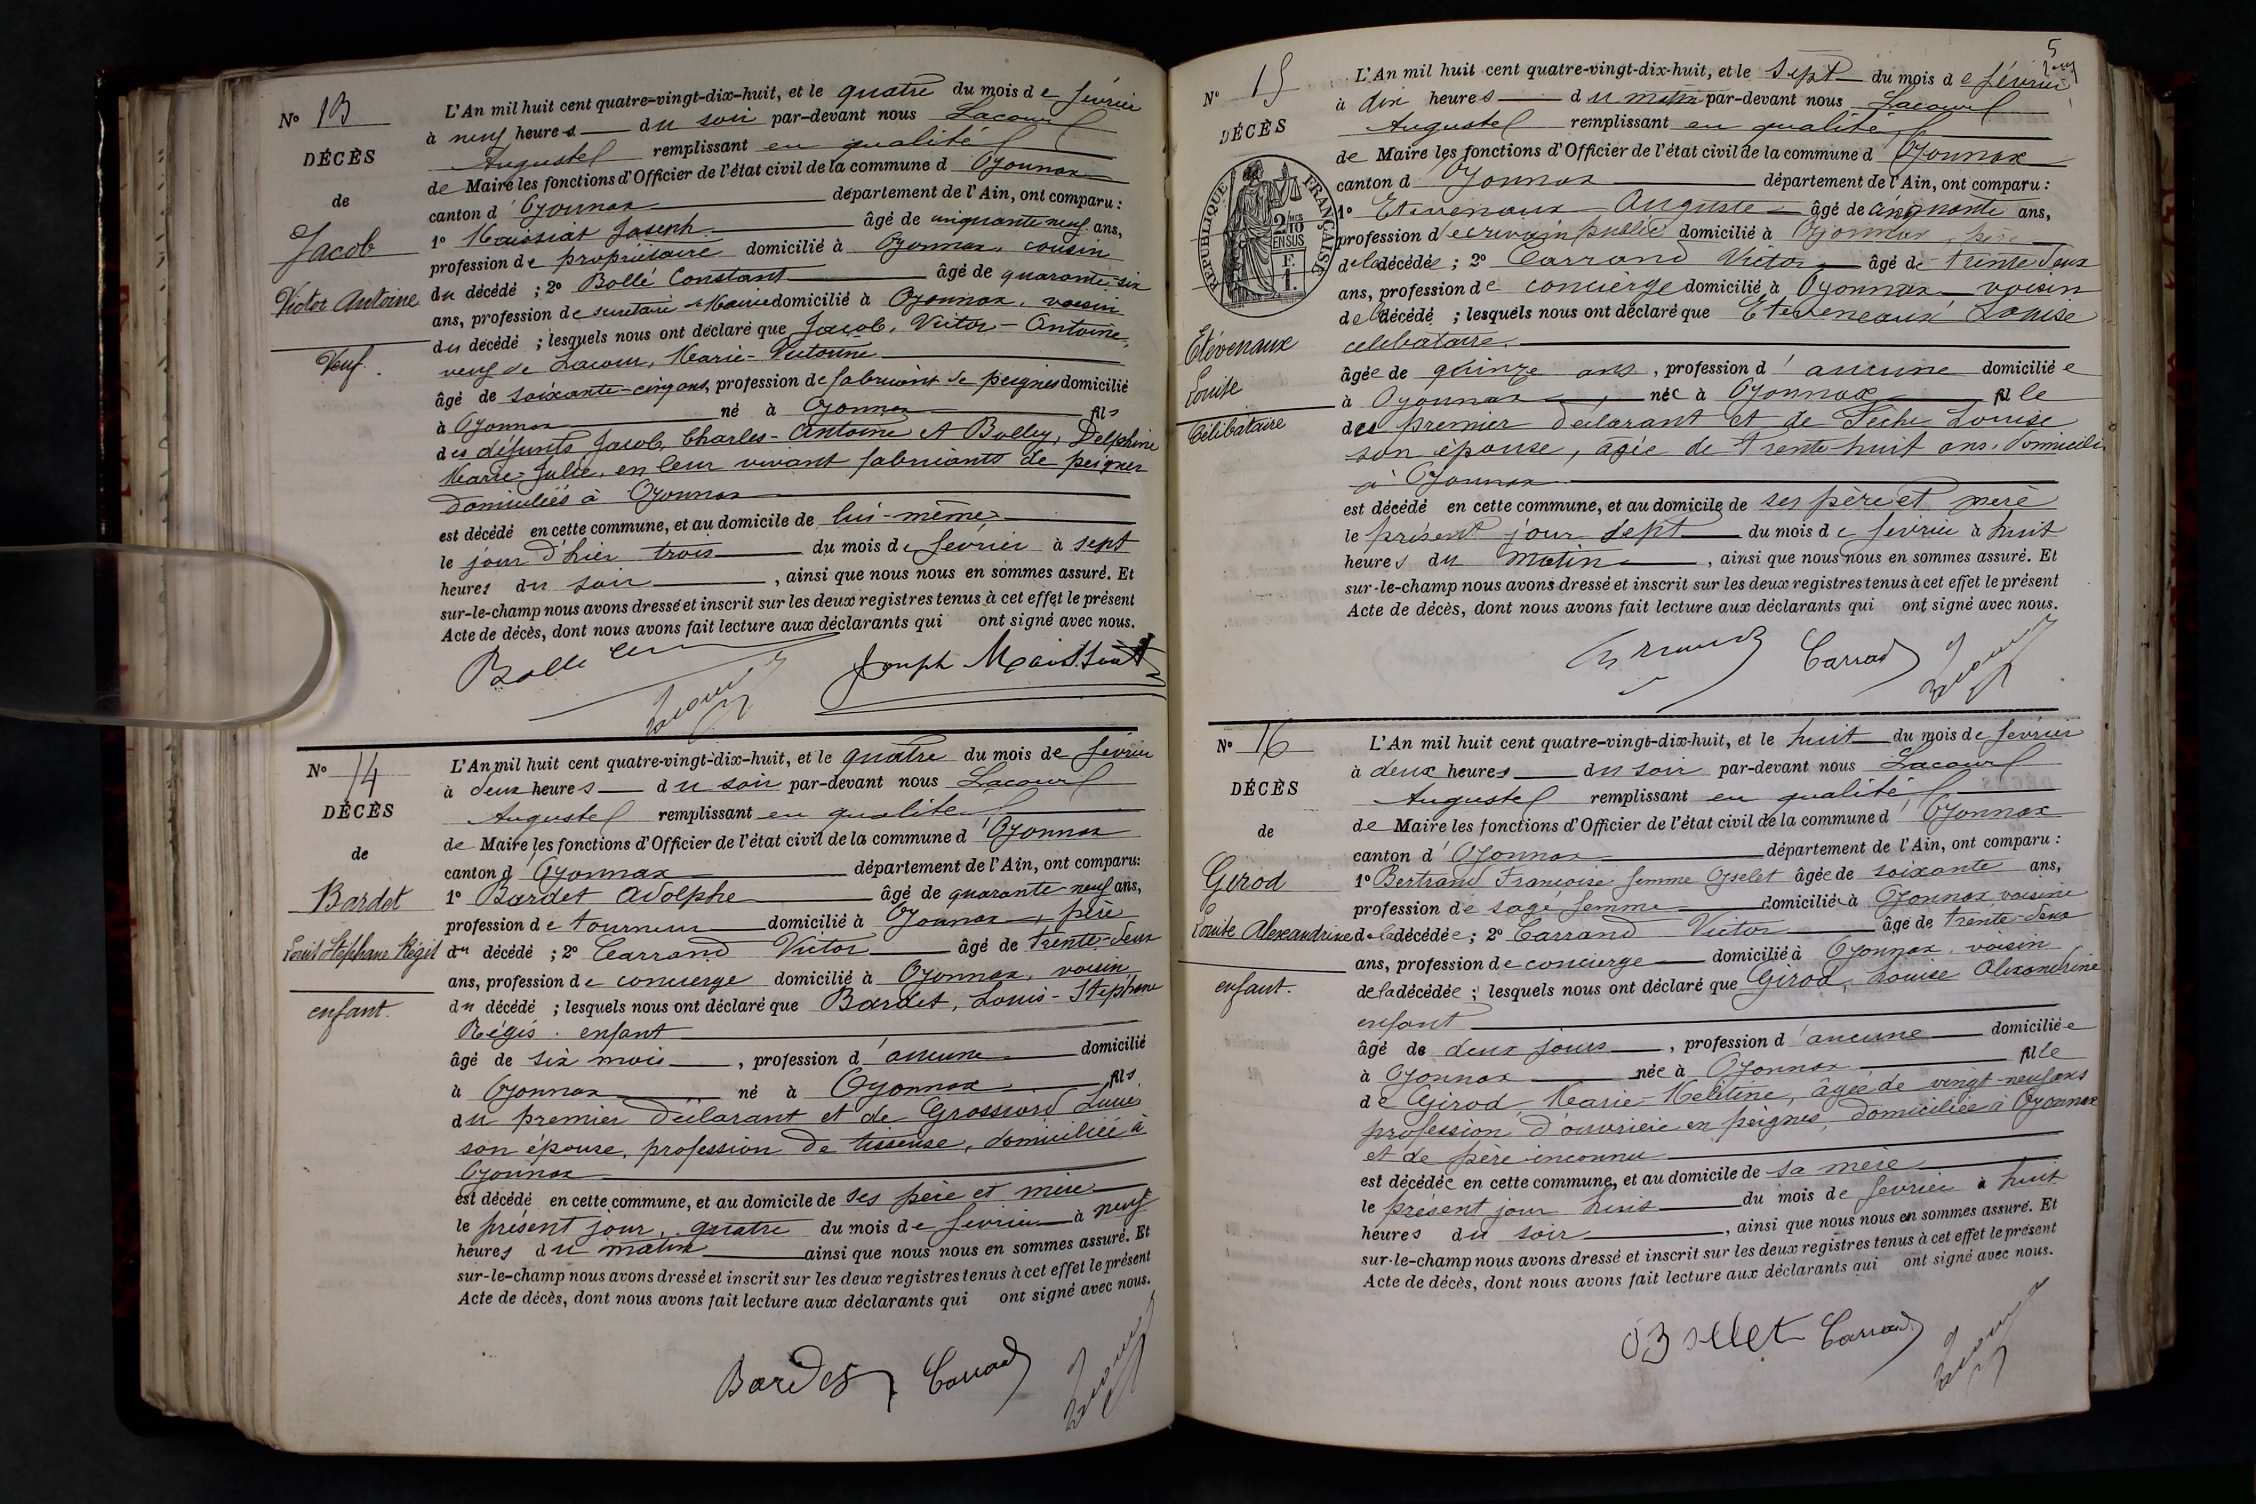 No 13
DÉCÈS
de
Jacob
Victor Antoine
Veuf.
L'An mil huit cent quatre-vingt-dix-huit, et le quatre du mois de février
à neuf heures du soir par-devant nous Lacour
Auguste remplissant en qualité
de Maire les fonctions d'Officier de l'état civil de la commune d'Oyonnax
canton d'Oyonnax département de l'Ain, ont comparu :
1o Maissiat Joseph âgé de cinquante neuf ans,
profession de propriétaire domicilié à Oyonnax, cousin
du décédé ; 2o Bollé Constant âgé de quarante-six
ans, profession de secrétaire de Mairie domicilié à Oyonnax, voisin
du décédé ; lesquels nous ont déclaré que Jacob, Victor-Antoine,
veuf de Lacour, Marie-Victorine
âgé de soixante-cinq ans, profession de fabricant de peignes domicilié
à Oyonnax né à Oyonnax fils
des défunts Jacob, Charles-Antoine et Bolley, Delphine
Marie-Julie, en leur vivant fabricants de peignes
domiciliés à Oyonnax
est décédé en cette commune, et au domicile de lui-même
le jour d'hier trois du mois de février à sept
heures du soir, ainsi que nous nous en sommes assuré. Et
sur-le-champ nous avons dressé et inscrit sur les deux registres tenus à cet effet le présent
Acte de décès, dont nous avons fait lecture aux déclarants qui ont signé avec nous.
Bollé Joseph Maissiat
Lacour
No 14
DÉCÈS
de
Bardet
Louis Stéphane Régis
enfant.
L'An mil huit cent quatre-vingt-dix-huit, et le quatre du mois de février
à deux heures du soir par-devant nous Lacour
Auguste remplissant en qualité
de Maire les fonctions d'Officier de l'état civil de la commune d'Oyonnax
canton d'Oyonnax département de l'Ain, ont comparu :
1o Bardet Adolphe âgé de quarante-neuf ans,
profession de tourneur domicilié à Oyonnax, père
du décédé ; 2o Carrand Victor âgé de trente-deux
ans, profession de concierge domicilié à Oyonnax, voisin
du décédé ; lesquels nous ont déclaré que Bardet, Louis-Stéphane
Régis. enfant
âgé de six mois, profession d'aucune domicilié
à Oyonnax né à Oyonnax fils
du premier déclarant et de Grossiord
son épouse, profession de tisseuse, domiciliée à
Oyonnax
est décédé en cette commune, et au domicile de ses père et mère
le présent jour, quatre du mois de février à neuf
heures du matin ainsi que nous nous en sommes assuré. Et
sur-le-champ nous avons dressé et inscrit sur les deux registres tenus à cet effet le présent
Acte de décès, dont nous avons fait lecture aux déclarants qui ont signé avec nous.
Bardet Carrand Lacour
5
No 15
DÉCÈS
RÉPUBLIQUE FRANÇAISE
2/10 EN SUS
F.
1.
Etévenaux
Louise
Célibataire
L'An mil huit cent quatre-vingt-dix-huit, et le sept du mois de février
à dix heures du matin par-devant nous Lacour
Auguste remplissant en qualité
de Maire les fonctions d'Officier de l'état civil de la commune d'Oyonnax
canton d'Oyonnax département de l'Ain, ont comparu :
1o Etévenaux Auguste âgé de cinquante ans,
profession d'écrivain public domicilié à Oyonnax, père
de la décédée ; 2o Carrand Victor âgé de trente deux
ans, profession de concierge domicilié à Oyonnax voisin
de la décédé ; lesquels nous ont déclaré que Etéveneaux Louise
célibataire.
âgée de quinze ans, profession d'aucune domiciliée
à Oyonnax, née à Oyonnax fille
du premier déclarant et de Louise
son épouse, âgée de trente-huit ans, domiciliée
à Oyonnax
est décédé en cette commune, et au domicile de ses père et mère
le présent jour sept du mois de février à huit
heures du matin, ainsi que nous nous en sommes assuré. Et
sur-le-champ nous avons dressé et inscrit sur les deux registres tenus à cet effet le présent
Acte de décès, dont nous avons fait lecture aux déclarants qui ont signé avec nous.
Carrand Lacour
No 16
DÉCÈS
de
Girod
Louise Alexandrine
enfant.
L'An mil huit cent quatre-vingt-dix-huit, et le huit du mois de février
à deux heures du soir par-devant nous Lacour
Auguste remplissant en qualité
de Maire les fonctions d'Officier de l'état civil de la commune d'Oyonnax
canton d'Oyonnax département de l'Ain, ont comparu :
1o Bertrand Françoise femme Oyselet âgée de soixante ans,
profession de sage femme domiciliée à Oyonnax, voisine
de la décédée ; 2o Carrand Victor âgé de trente-deux
ans, profession de concierge domicilié à Oyonnax, voisin
de la décédée ; lesquels nous ont déclaré que Girod, Louise Alexandrine
enfant
âgé de deux jours, profession d'aucune domiciliée
à Oyonnax née à Oyonnax fille
de Girod, Marie-Mélitine, âgée de vingt-neuf ans
profession d'ouvrière en peignes, domiciliée à Oyonnax
et de père inconnu
est décédée en cette commune, et au domicile de sa mère
le présent jour huit du mois de février à huit
heures du soir, ainsi que nous nous en sommes assuré. Et
sur-le-champ nous avons dressé et inscrit sur les deux registres tenus à cet effet le présent
Acte de décès, dont nous avons fait lecture aux déclarants qui ont signé avec nous.
Carrand Lacour